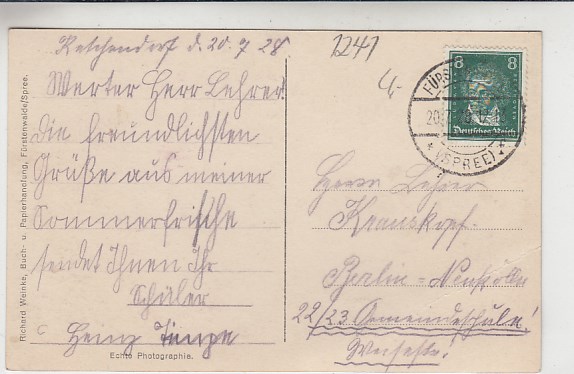 Ketschendorf d. 20. 7. 28
Werter Herr Lehrer!
Die freundlichsten
Grüße aus meiner
Sommerfrische
sendet Ihnen Ihr
Schüler
Heinz
Echte Photographie.
Richard Weinke, Buch- u. Papierhandlung, Fürstenwalde/Spree.
1241
4,-
8 8
Deutsches Reich
FÜRST
20.
* (SPREE) *
Herrn Lehrer
Krauskopf.
Berlin = Neukölln
22/23 Gemeindeschule!
Weisestr.